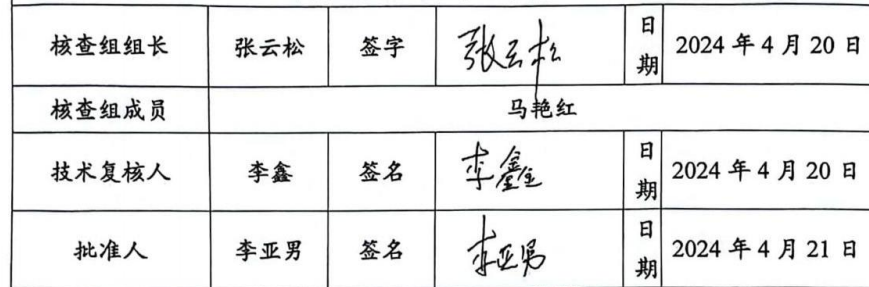 核查组组长 张云松 签字 张云松 日期 2024 年 4 月 20 日
核查组成员 马艳红
技术复核人 李鑫 签名 李鑫 日期 2024 年 4 月 20 日
批准人 李亚男 签名 李亚男 日期 2024 年 4 月 21 日